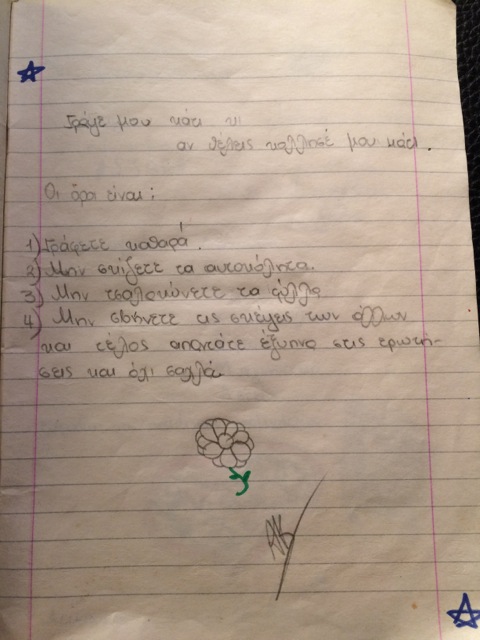 Γράψε μου κάτι κι
αν θέλεις κόλλησέ μου κάτι.
Οι όροι είναι:
1) Γράφετε καθαρά.
2) Μην σκίζετε τα αυτοκόλητα.
3) Μην τσαλακώνετε τα φύλλα
4) Μην σβήνετε τις σκέψεις των άλλων
και τέλος απαντάτε έξυπνα στις ερωτή-
σεις και όχι σαχλά
ΑΚ